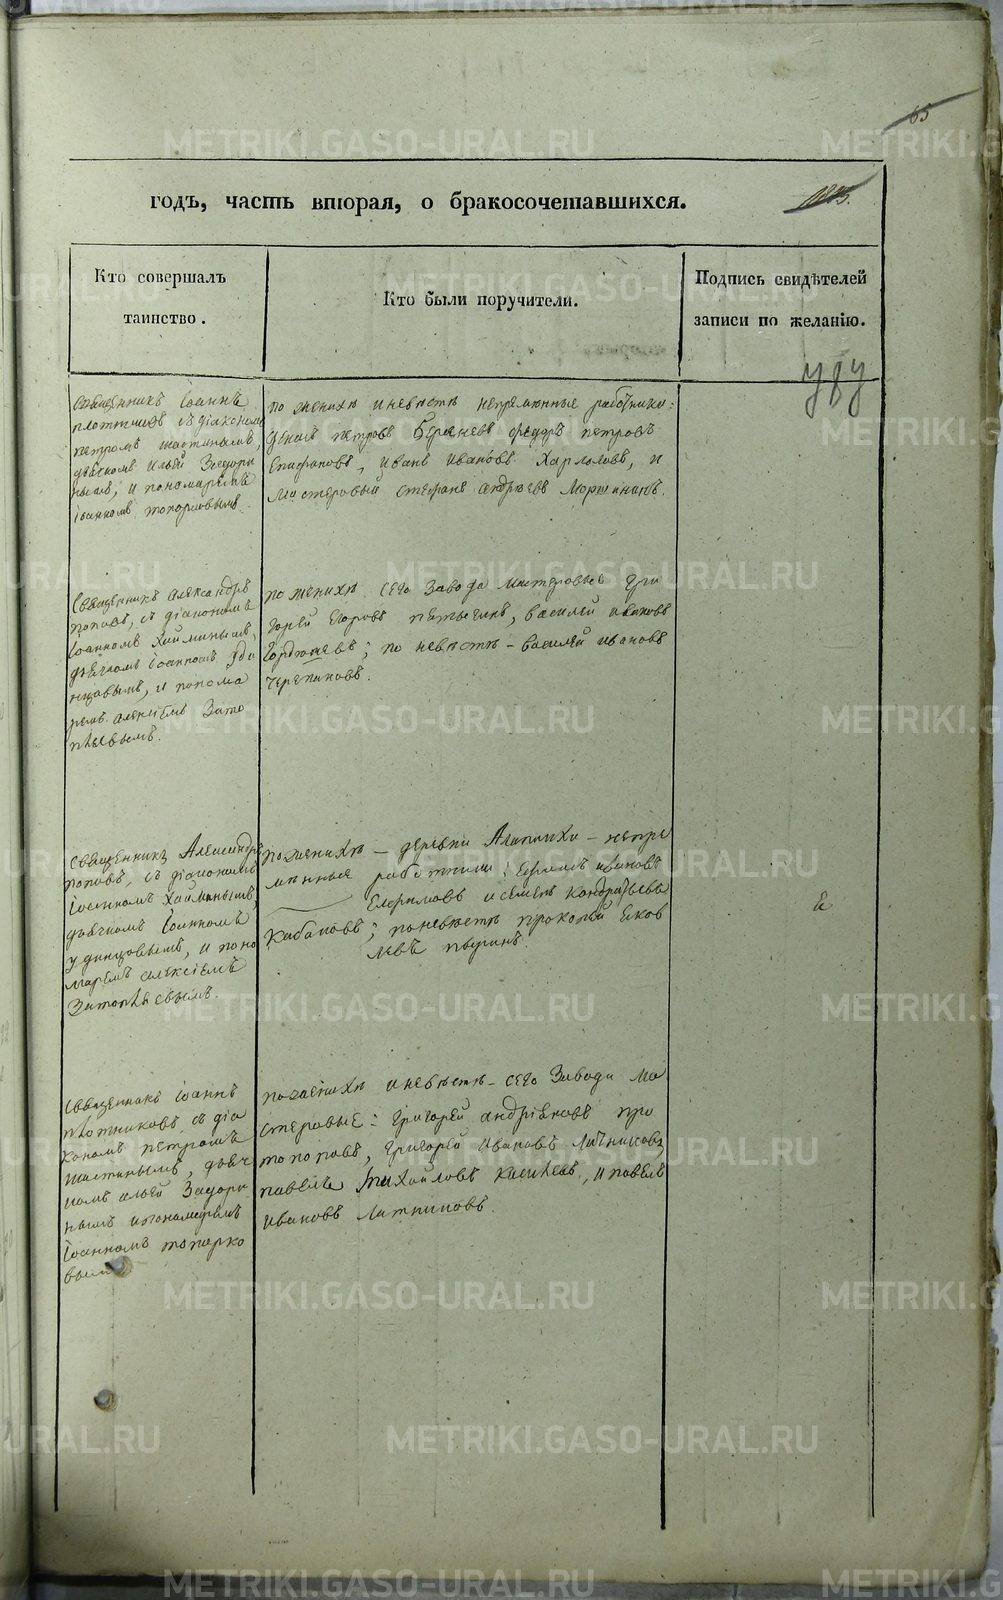 65
годъ, часть вторая, о бракосочетавшихся.
Кто совершалъ
таинство.
Кто были поручители.
Подпись свидѣтелей
записи по желанію.
Священникъ Іоаннъ
Плотниковъ съ діакономъ
Петромъ
дьячкомъ Ильей Задори
нымъ, и пономаремъ
Іоанномъ Топорковымъ.
по женихѣ и невѣстѣ непремѣнные работники:
Петровъ Федоръ Петровъ
Епифановъ, Иванъ Ивановъ Харловъ, и
Мастеровый Стефанъ Андреевъ
Священникъ Александръ
Поповъ, съ діакономъ
Іоанномъ
дьячкомъ Іоанномъ Уди
нцовымъ, и понома
ремъ Алексіемъ Зато
пляевымъ.
по женихѣ сего Завода Мастеровые Гри
горей Егоровъ Василей Ивановъ
по невѣстѣ - Василей Ивановъ
Черепановъ.
Священникъ Александръ
Поповъ, съ діакономъ
Іоанномъ
дьячкомъ Іоанномъ
Удинцовымъ, и поно
маремъ Алексіемъ
Затопляевымъ.
по женихѣ - деревни - непре
мѣнные работники: Ивановъ
Ефимовъ и Семенъ Кондратьевъ
Кабаковъ; по невѣстѣ Прокопей Яков
левъ
Священникъ Іоаннъ
Плотниковъ, съ діа
кономъ Петромъ
дьяч
комъ Ильей Задори
нымъ и пономаремъ
Іоанномъ Топорко
вымъ
по женихѣ и невѣстѣ - сего Завода Ма
стеровые: Григорей Андріяновъ Про
топоповъ, Григорей Ивановъ
Павелъ Михайловъ и Павелъ
Ивановъ
METRIKI.GASO-URAL.RU